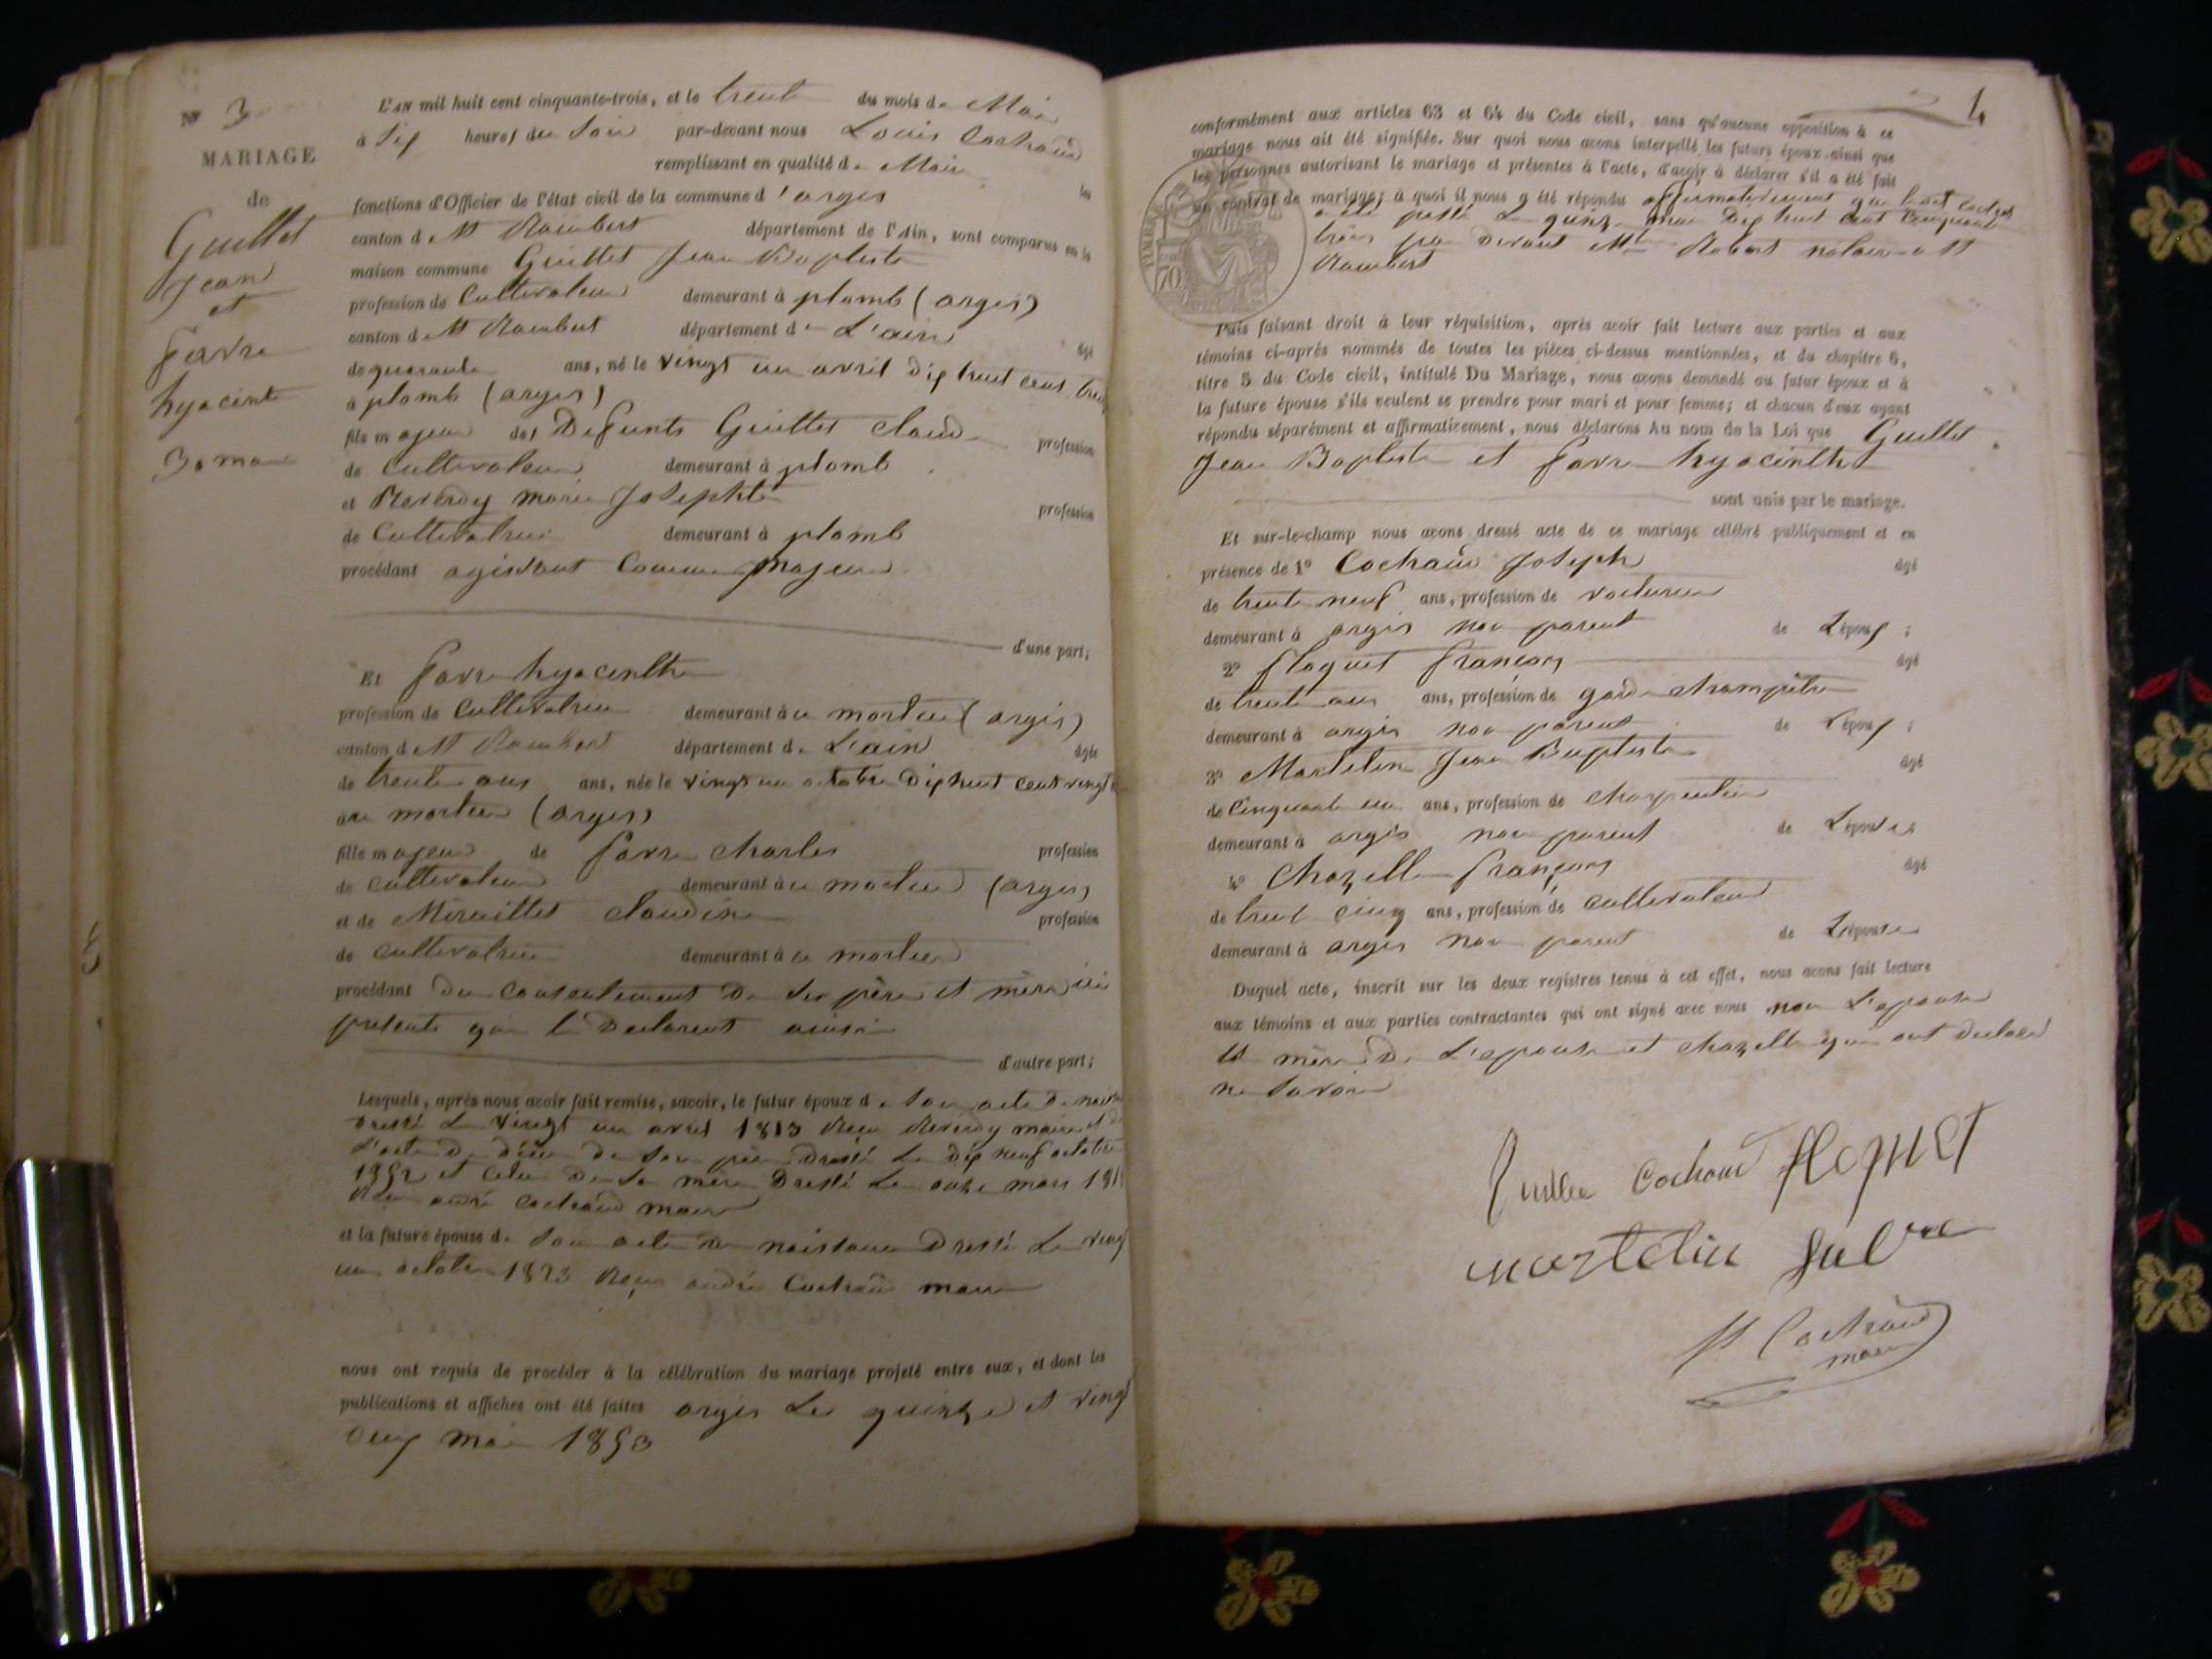 N° 3
MARIAGE
de
Guillet
Jean
et
favre
hyacint
30 mai
L'AN mil huit cent cinquante-trois, et le trente du mois de Mai
à six heures du soir par-devant nous Louis Cochaud
remplissant en qualité de Maire les
fonctions d'Officier de l'état civil de la commune d'argis
canton de St Rambert département de l'Ain, sont comparus en la
maison commune Guillet Jean Baptiste
profession de Cultivateur demeurant à plomb (argis)
canton de St Rambert département de L'ain âgé
de quarante ans, né le vingt un avril dix huit cent treize
à plomb (argis)
fils majeur des Defunts Guillet Claude profession
de Cultivateur demeurant à plomb
et Reverdy marie Josephte profession
de Cultivatrice demeurant à plomb
procédant agissant comme majeur
d'une part;
Et favre hyacinthe
profession de Cultivatrice demeurant à (argis)
canton de St Rambert département de L'ain âgée
de trente ans ans, née le vingt un octobre dix huit cent vingt
(argis)
fille majeure de favre charles profession
de cultivateur demeurant à (argis)
et de claudine profession
de cultivatrice demeurant à
procédant du consentement de ses père et mère ici
présents qui le Declarent ainsi
d'autre part;
Lesquels, après nous avoir fait remise, savoir, le futur époux de son acte de
Dressé le vingt un avril 1813 Reçu Reverdy maire et de
L'acte de décès de son père Dressé le dix neuf octobre
1852 et celui de sa mère Dressé le onze mars
andré Cochaud maire
et la future épouse de son acte de naissance Dressé le vingt
un octobre 1823 Reçu andré Cochaud maire
nous ont requis de procéder à la célébration du mariage projeté entre eux, et dont les
publications et affiches ont été faites argis les quinze et vingt
deux mai 1853
4
conformément aux articles 63 et 64 du Code civil, sans qu'aucune opposition à ce
mariage nous ait été signifiée. Sur quoi nous avons interpellé les futurs époux ainsi que
les personnes autorisant le mariage et présentes à l'acte, d'avoir à déclarer s'il a été fait
un contrat de mariage; à quoi il nous a été répondu affirmativement que
a été passé le quinze mai Dix huit cent Cinquante
trois par devant Me Robert notaire a St
Rambert
TIMBRE
70
Puis faisant droit à leur réquisition, après avoir fait lecture aux parties et aux
témoins ci-après nommés de toutes les pièces ci-dessus mentionnées, et du chapitre 6,
titre 5 du Code civil, intitulé Du Mariage, nous avons demandé au futur époux et à
la future épouse s'ils veulent se prendre pour mari et pour femme; et chacun d'eux ayant
répondu séparément et affirmativement, nous déclarons Au nom de la Loi que Guillet
Jean Baptiste et favre hyacinthe
sont unis par le mariage.
Et sur-le-champ nous avons dressé acte de ce mariage célébré publiquement et en
présence de 1° Cochaud Joseph âgé
de trente neuf ans, profession de voiturier
demeurant à argis non parent de L'époux;
2° floquet françois âgé
de trente ans ans, profession de garde champêtre
demeurant à argis non parent de L'époux;
3° Martelin Jean Baptiste âgé
de cinquante un ans, profession de charpentier
demeurant à argis non parent de L'épouse
4° Chazelle françois âgé
de trente cinq ans, profession de cultivateur
demeurant à argis non parent de L'épouse
Duquel acte, inscrit sur les deux registres tenus à cet effet, nous avons fait lecture
aux témoins et aux parties contractantes qui ont signé avec nous non L'epouse
la mère De L'epouse et chazelle qui ont declaré
ne savoir
Cochaud floquet
martelin
Cochaud
maire